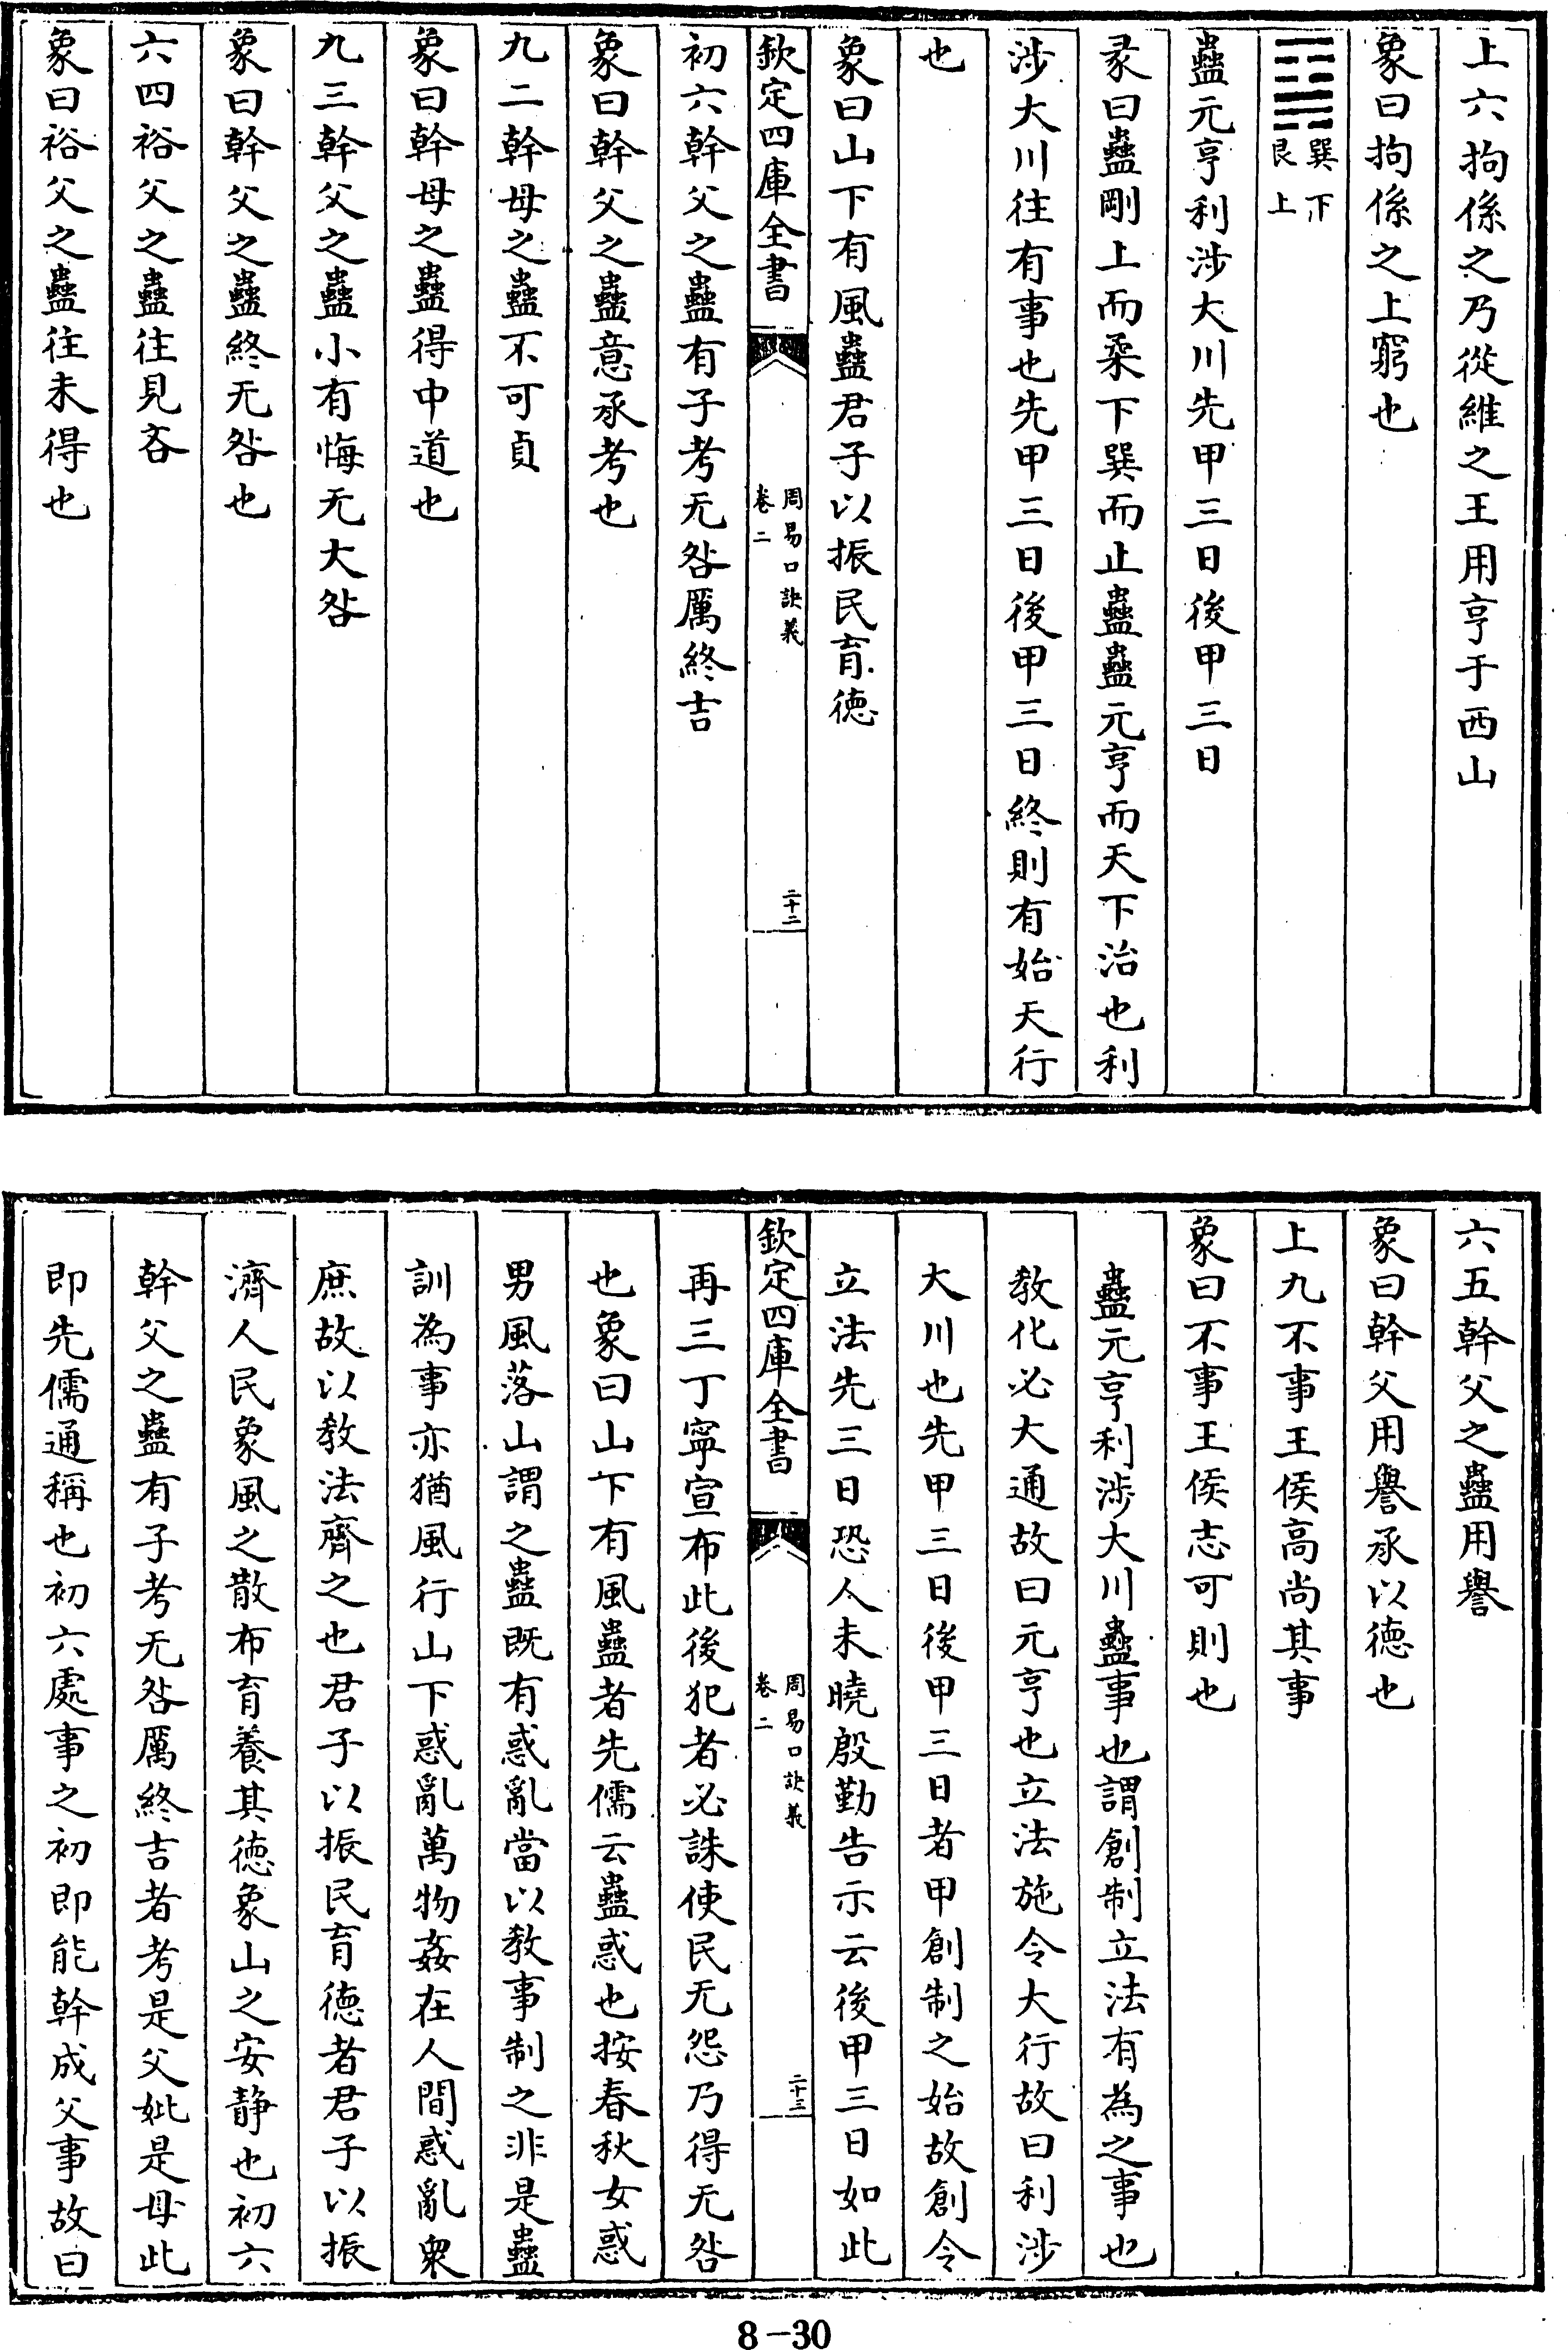 上六拘係之乃從維之王用亨于西山
象曰拘係之上窮也
巽下
艮上
蠱元亨利涉大川先甲三日後甲三日
彖曰蠱剛上而柔下巽而止蠱蠱元亨而天下治也利
涉大川往有事也先甲三日後甲三日終則有始天行
也
象曰山下有風蠱君子以振民育德
欽定四庫全書
周易口訣義
卷二
二十二
初六幹父之蠱有子考无咎厲終吉
象曰幹父之蠱意承考也
九二幹母之蠱不可貞
象曰幹母之蠱得中道也
九三幹父之蠱小有悔无大咎
象曰幹父之蠱終无咎也
六四裕父之蠱往見吝
象曰裕父之蠱往未得也
六五幹父之蠱用譽
象曰幹父用譽承以德也
上九不事王侯高尚其事
象曰不事王侯志可則也
蠱元亨利涉大川蠱事也謂創制立法有為之事也
教化必大通故曰元亨也立法施令大行故曰利涉
大川也先甲三日後甲三日者甲創制之始故創令
立法先三日恐人未曉殷勤告示云後甲三日如此
欽定四庫全書
周易口訣義
卷二
二十三
再三丁寧宣布此後犯者必誅使民无怨乃得无咎
也象曰山下有風蠱者先儒云蠱惑也按春秋女惑
男風落山謂之蠱既有惑亂當以教事制之非是蠱
訓為事亦猶風行山下惑亂萬物姦在人間惑亂衆
庶故以教法齊之也君子以振民育德者君子以振
濟人民象風之散布育養其德象山之安靜也初六
幹父之蠱有子考无咎厲終吉者考是父妣是母此
即先儒通稱也初六處事之初即能幹成父事故曰
8-30